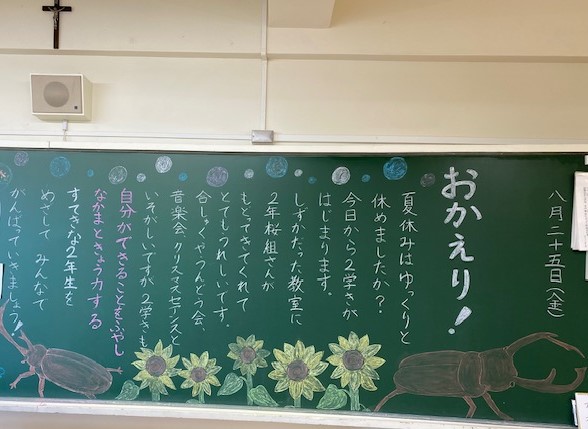 八月二十五日(金)
おかえり!
夏休みはゆっくりと
休めましたか?
今日から2学きが
はじまります。
しずかだった教室に
2年桜組さんが
もどってきてくれて
とてもうれしいです。
合しゅくやうんどう会、
音楽会、クリスマスセアンスと
いそがしいですが2学きも
自分ができることをふやし
なかまときょう力する
すてきな2年生を
めざして みんなで
がんばっていきましょう!